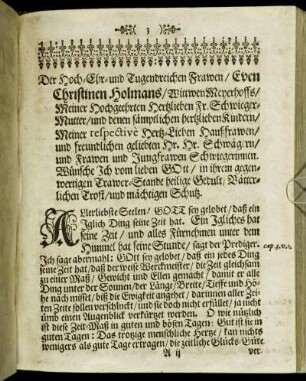 3
Der Hoch-Ehr- und Tugendreichen Frawen / Even
Christinen Holmans / Witwen Meyerhoffs /
Meiner Hochgeehrten Hertzlieben Fr. Schwieger-
Mutter / und denen sämptlichen hertzlieben Kindern /
Meiner respectivè Hertz-Lieben Haußfrawen /
und freundlichen geliebten Hr. Hr. Schwägern /
und Frawen und Jungfrawen Schwiegerinnen.
Wünsche Ich vom lieben GOtt / in ihrem gegen-
wertigen Trawer-Stande heilige Gedult / Vätter-
lichen Trost / und mächtigen Schutz.
Allerliebste Seelen / GOTT sey gelobet / daß ein
Jglich Ding seine Zeit hat. Ein Jgliches hat
seine Zeit / und alles Fürnehmen unter dem
Himmel hat seine Stunde / sagt der Prediger.
Jch sage abermahl: GOtt sey gelobet / daß ein jedes Ding
seine Zeit hat / daß der weise Werckmeister / die Zeit gleichsam
zu einer Maß / Gewicht und Ellen gemacht / damit er alle
Ding unter der Sonnen / der Länge / Breite / Tieffe und Hö-
he nach misset / biß die Ewigkeit angehet / darinnen aller Zei-
ten Zeite sollen verschluckt / und sie doch nicht erfüllet / ja nicht
umb einen Augenblick verkürtzet werden. O wie nützlich
ist diese Zeit-Maß in guten und bösen Tagen: Gut ist sie in
guten Tagen: Das trotzige menschliche Hertze / kan nichts
wenigers als gute Tage ertragen / die zeitliche Glücks-Güte
A ij
ver-